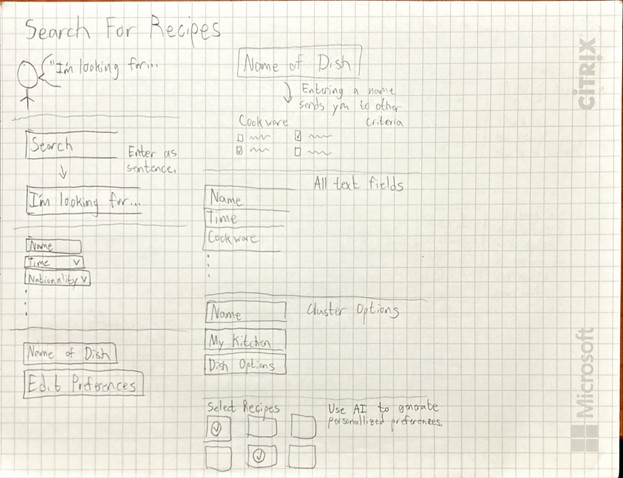 Search For Recipes
"I'm looking for...
Search
Enter as
sentence.
I'm looking for...
Name
Time
Nationality
Name of Dish
Edit Preferences
Name of Dish
Entering a name
sends you to other
criteria
Cookware
All text fields
Name
Time
Cookware
Name
Cluster Options
My Kitchen
Dish Options
Select Recipes
Use AI to generate
personallized preferences.
CiTRIX
Microsoft